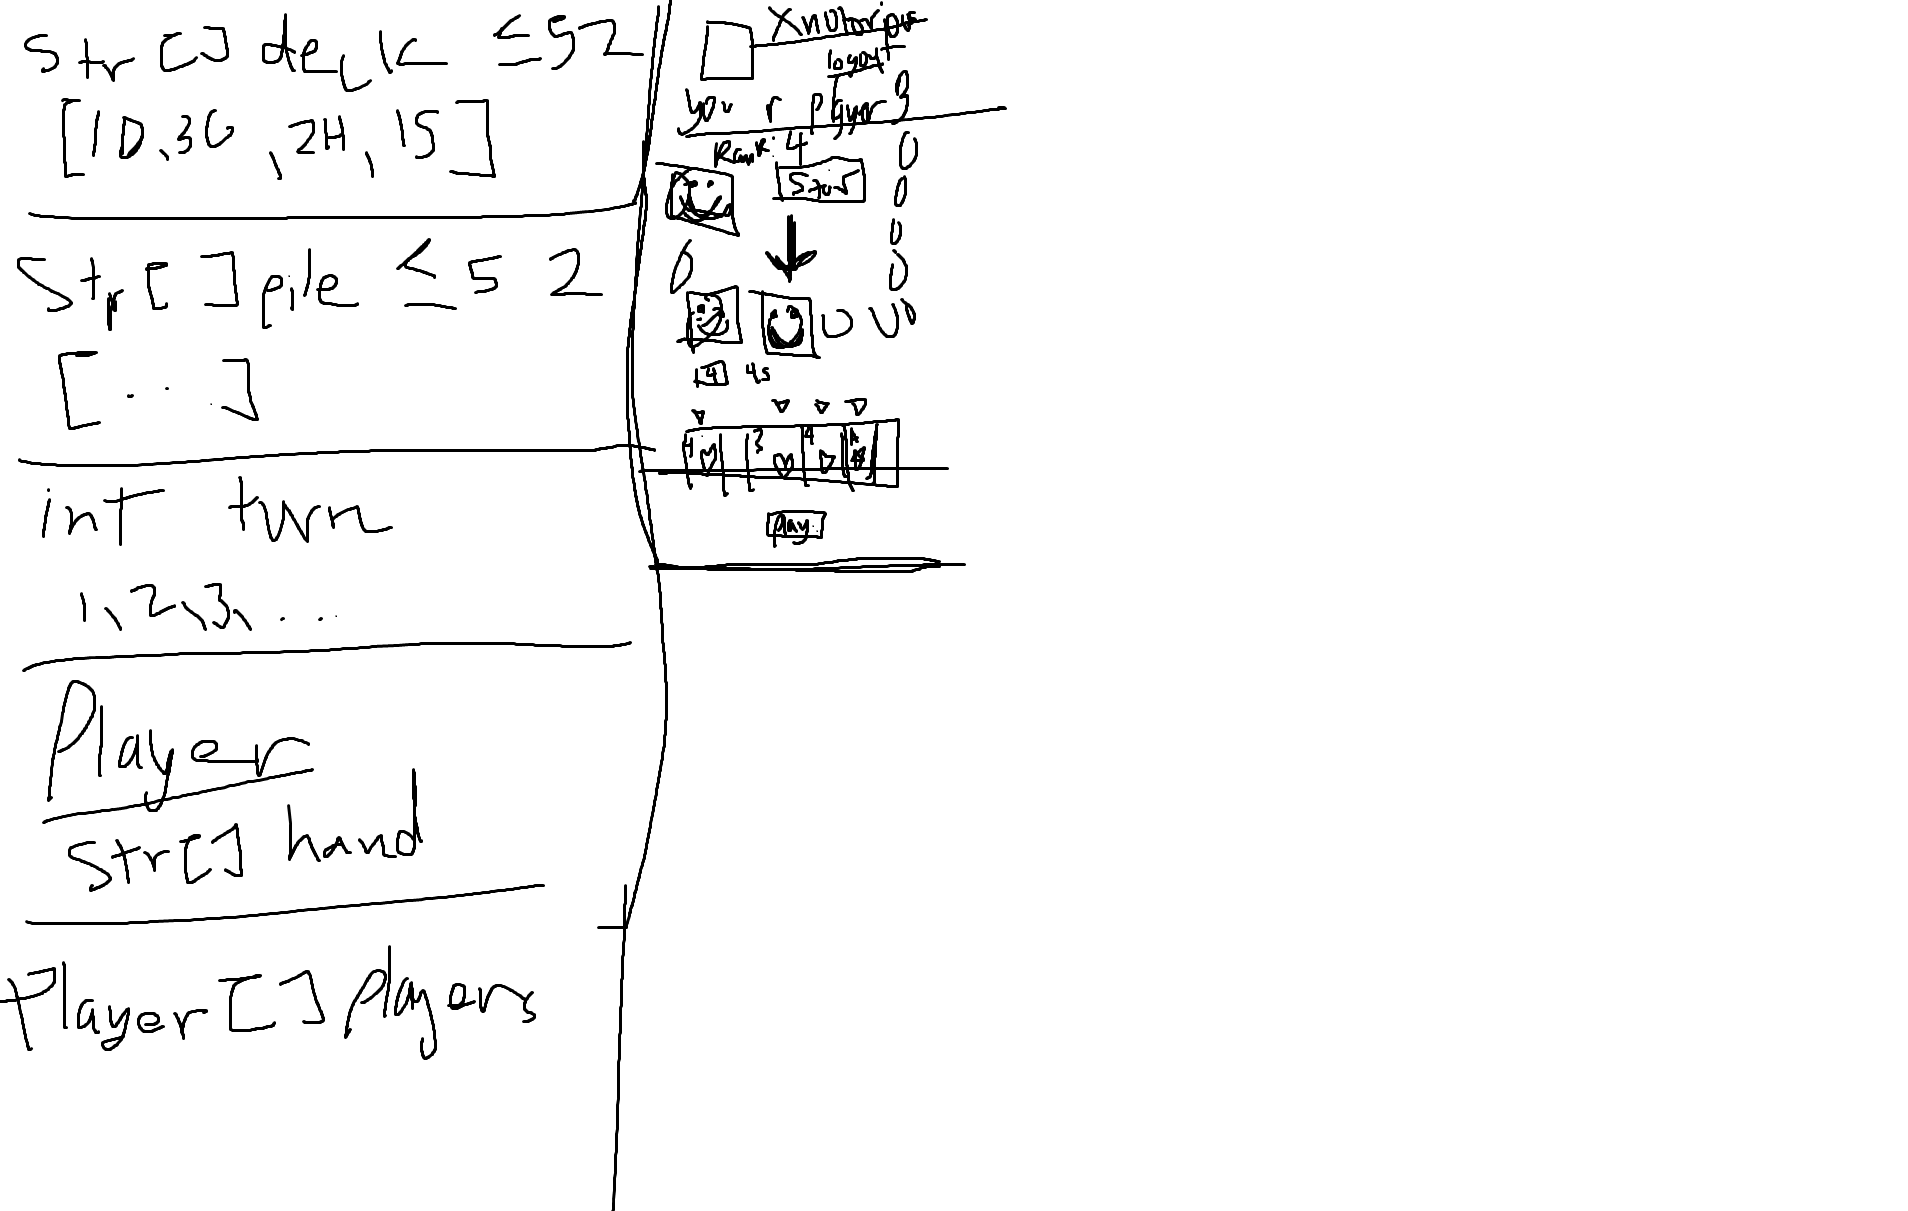 Str [] deck ≤52
[1D, 3C, 2H, 1S]
Str [] pile ≤52
[...]
int turn
1, 2, 3, ...
Player
Str[] hand
Player [] players
logout
you r player 3
Rank: 4
Start
4 4s
4 3 4 A
play